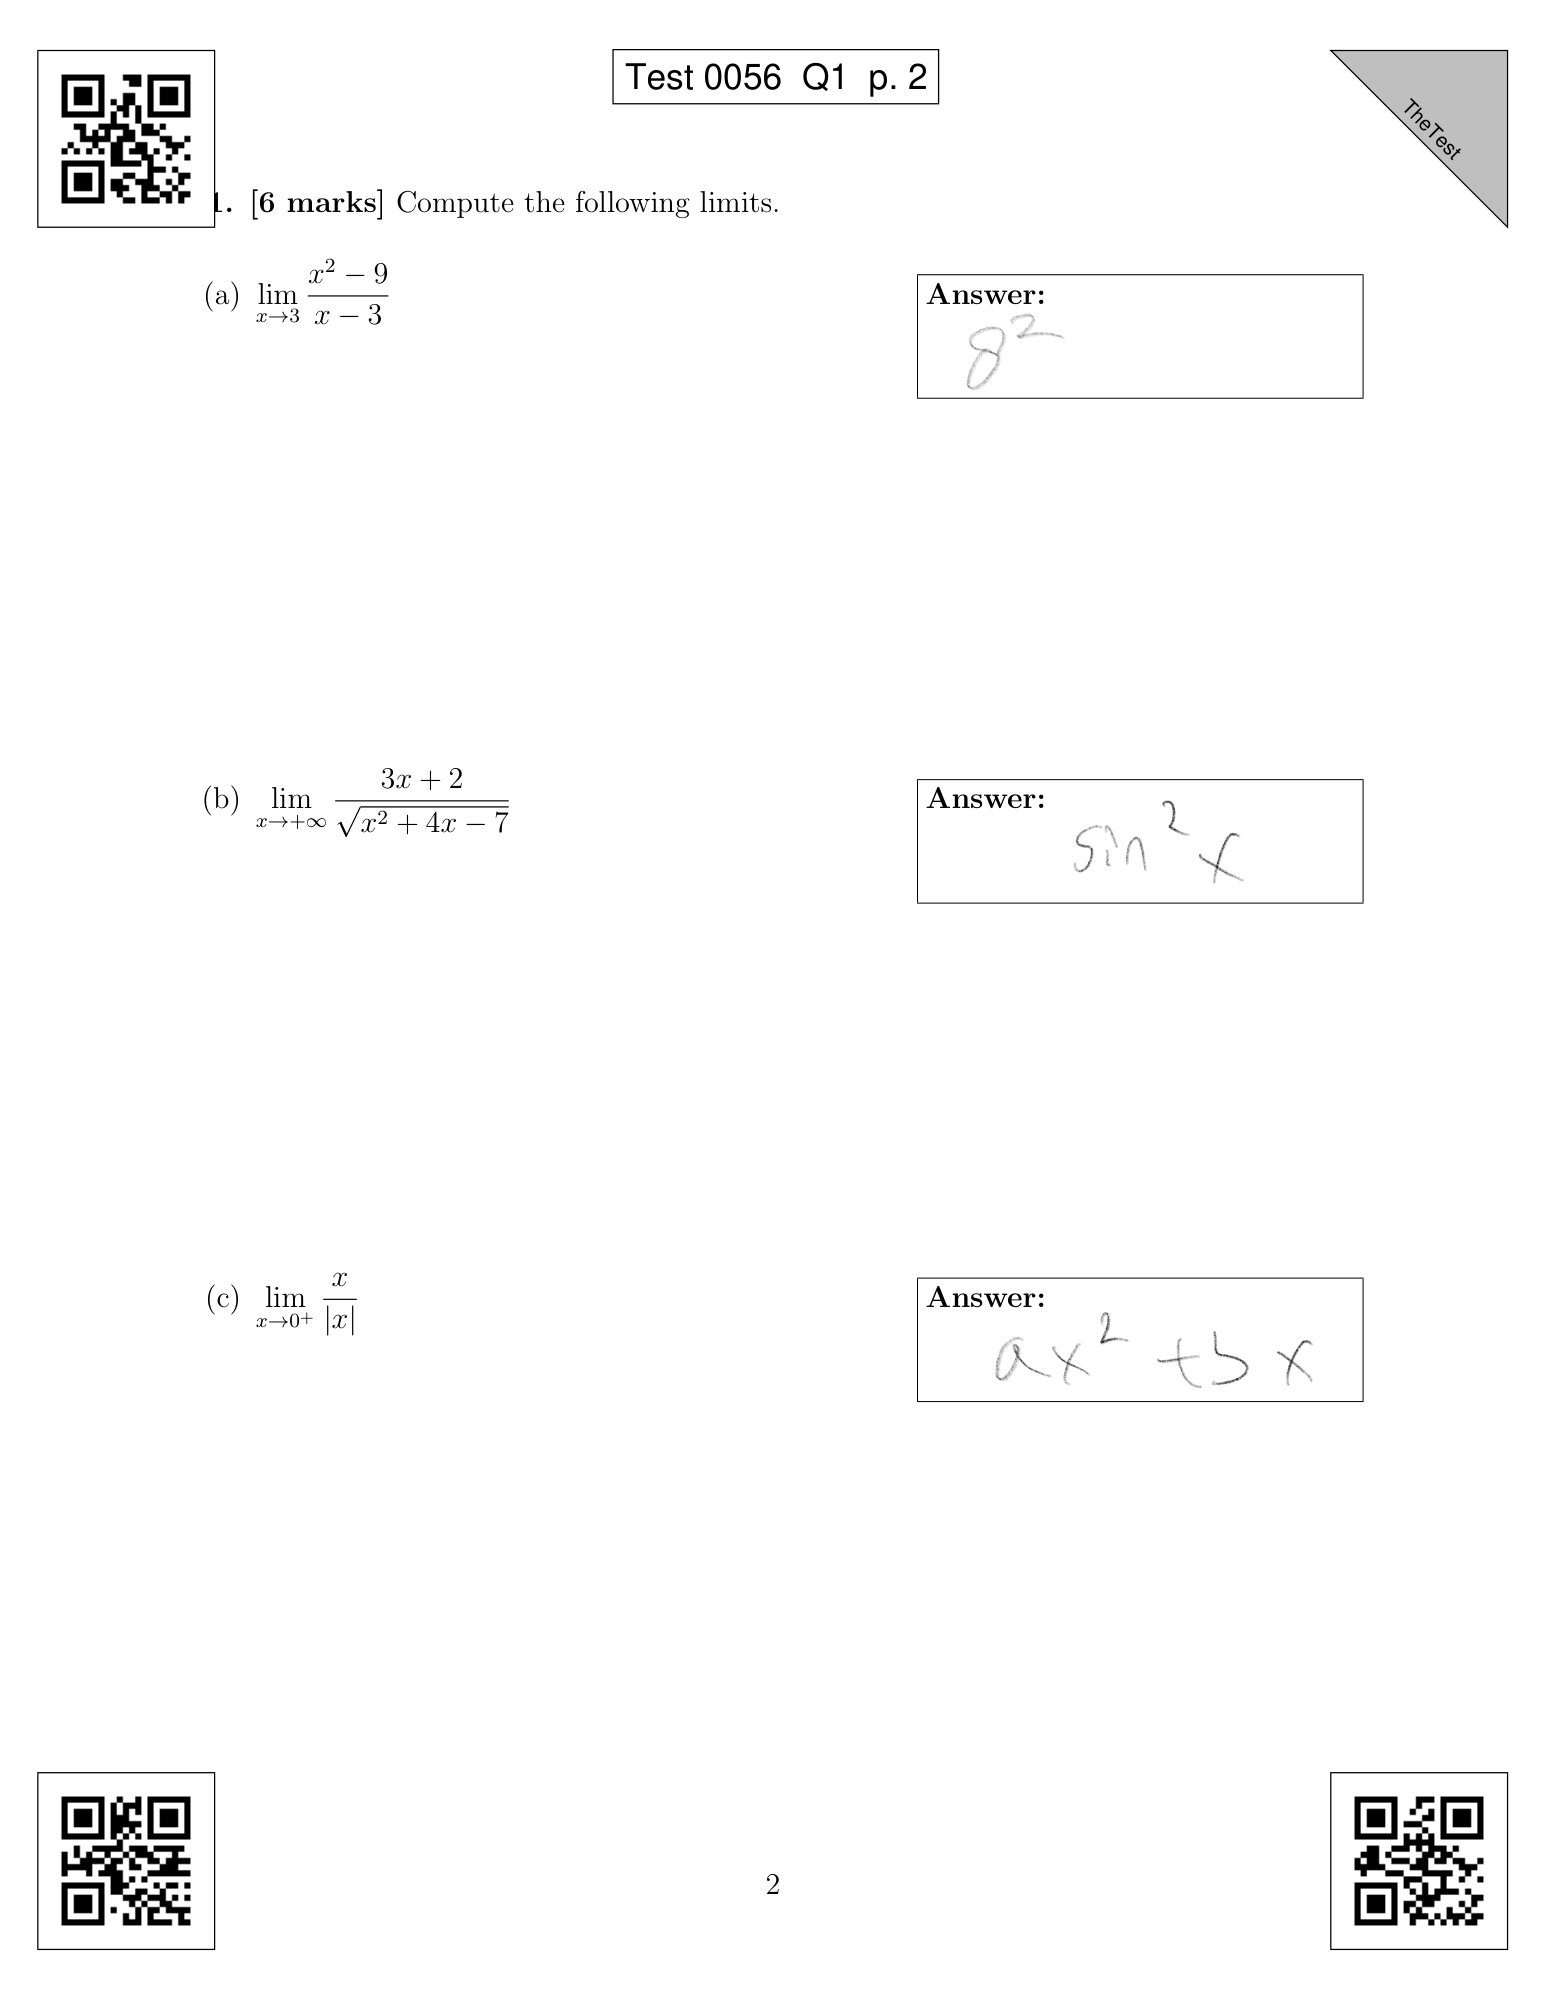 Test 0056 Q1 p. 2
TheTest
1. [6 marks] Compute the following limits.
(a) lim x→3 (x² − 9)/(x − 3)
Answer:
8²
(b) lim x→+∞ (3x + 2)/√(x² + 4x − 7)
Answer:
sin² x
(c) lim x→0⁺ x/|x|
Answer:
ax² + bx
2